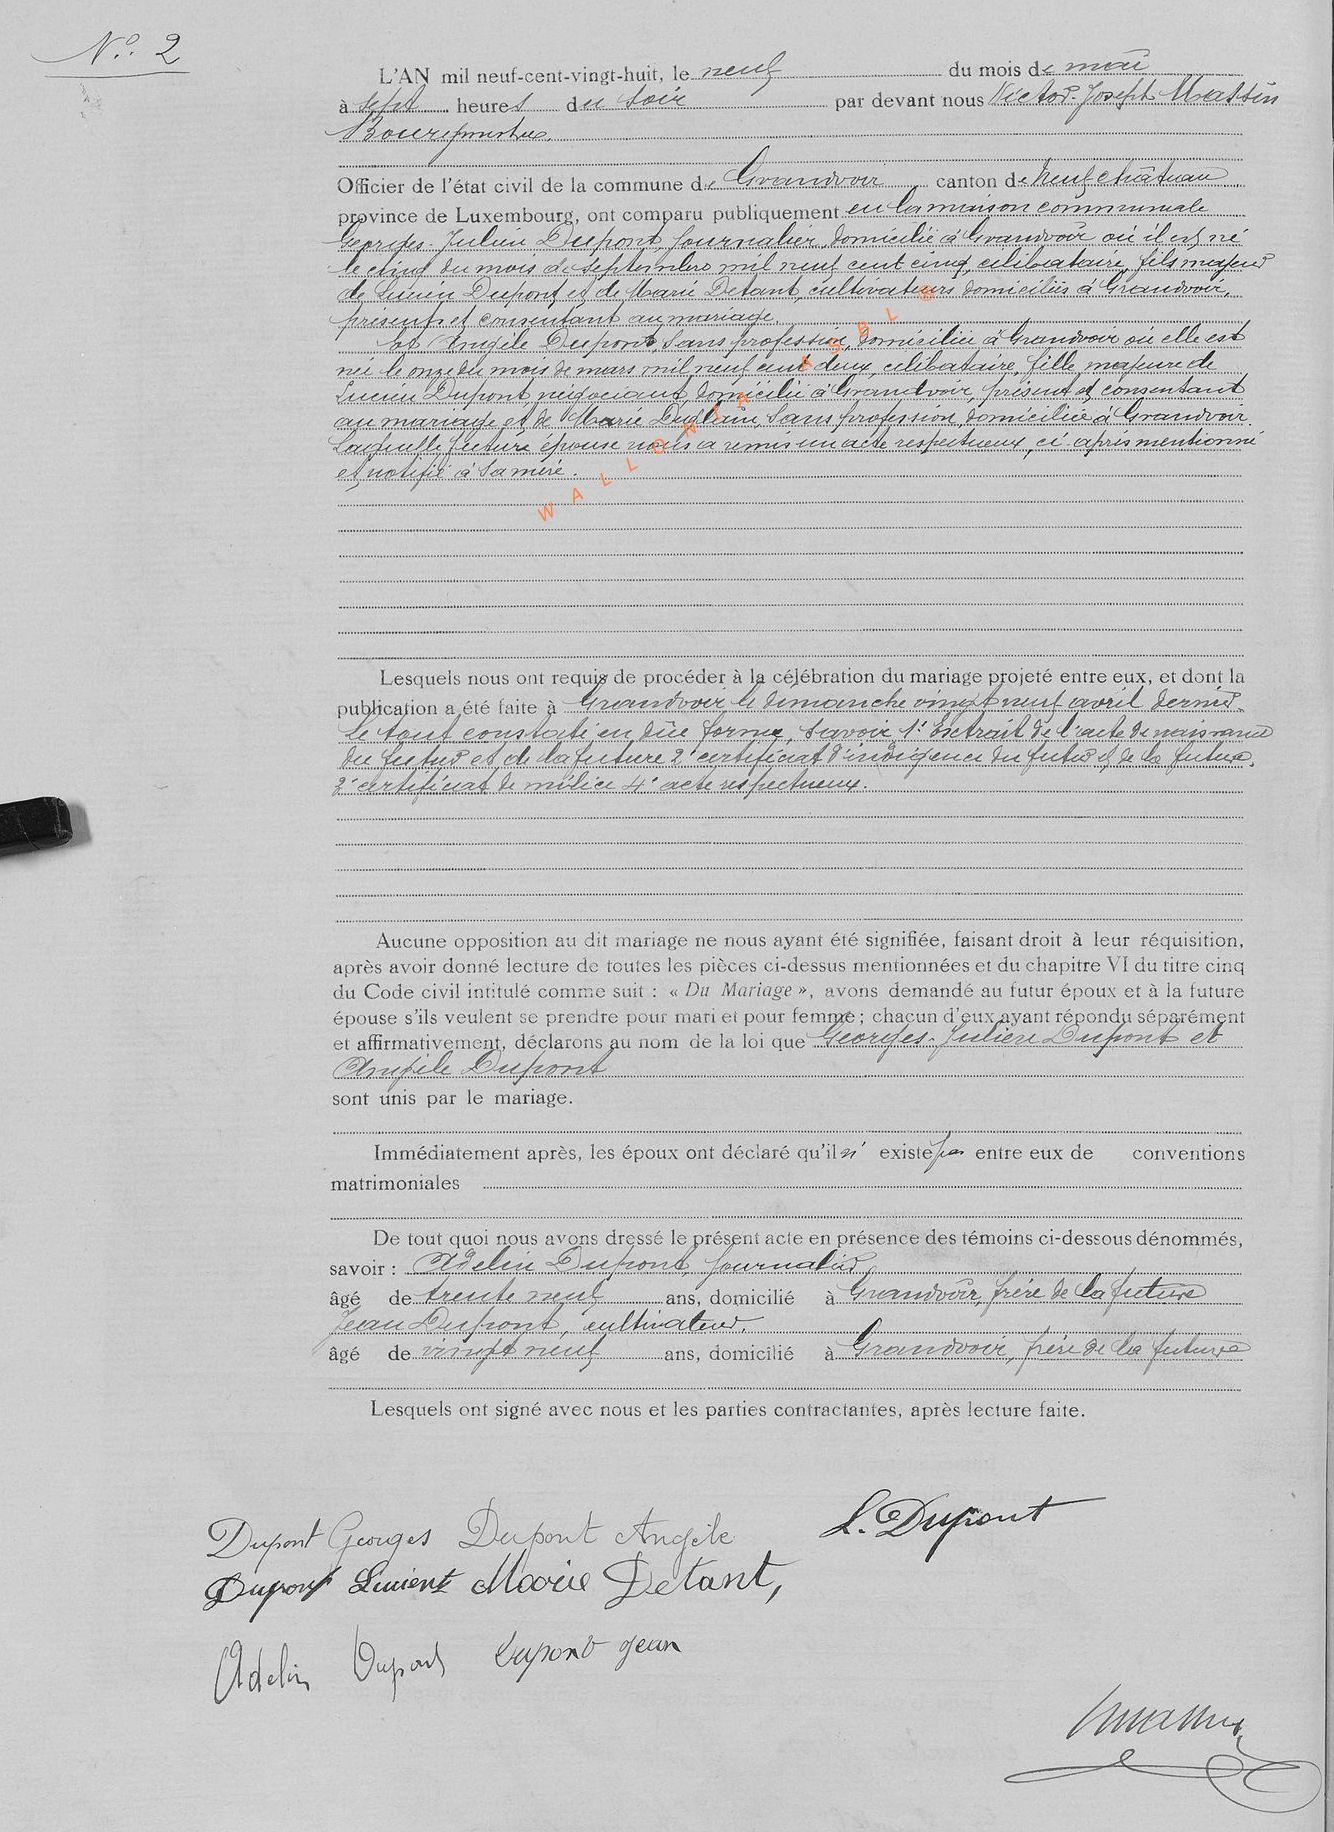 N° 2
L'AN mil neuf-cent-vingt-huit, le neuf du mois de mai
à sept heures du soir par devant nous Victor-Joseph Massin
Bourgmestre
Officier de l'état civil de la commune de Grandvoir canton de Neufchâteau
province de Luxembourg, ont comparu publiquement en la maison communale
Georges-Julien Dupont, journalier, domicilié à Grandvoir où il est né
le cinq du mois de septembre mil neuf cent cinq, célibataire, fils majeur
de Lucien Dupont et de Marie Detant, cultivateurs domiciliés à Grandvoir,
présents et consentant au mariage.
Et Angèle Dupont, sans profession, domiciliée à Grandvoir où elle est
née le onze du mois de mars mil neuf cent deux, célibataire, fille majeure de
Lucien Dupont négociant, domicilié à Grandvoir, présent et consentant
au mariage et de Marie sans profession, domiciliée à Grandvoir.
Laquelle future épouse nous a remis un acte respectueux, ci-après mentionné
et notifié à sa mère.
WALLONIA ASBL ©
Lesquels nous ont requis de procéder à la célébration du mariage projeté entre eux, et dont la
publication a été faite à Grandvoir le dimanche vingt neuf avril dernier.
le tout constaté en due forme, savoir 1° Extrait de l'acte de naissance
du futur et de la future 2° certificat d'indigence du futur et de la future,
3° certificat de milice 4° acte respectueux.
Aucune opposition au dit mariage ne nous ayant été signifiée, faisant droit à leur réquisition,
après avoir donné lecture de toutes les pièces ci-dessus mentionnées et du chapitre VI du titre cinq
du Code civil intitulé comme suit : « Du Mariage », avons demandé au futur époux et à la future
épouse s'ils veulent se prendre pour mari et pour femme ; chacun d'eux ayant répondu séparément
et affirmativement, déclarons au nom de la loi que Georges-Julien Dupont et
Angèle Dupont
sont unis par le mariage.
Immédiatement après, les époux ont déclaré qu'il n'existe pas entre eux de conventions
matrimoniales
De tout quoi nous avons dressé le présent acte en présence des témoins ci-dessous dénommés,
savoir : Adelin Dupont, journalier,
âgé de trente neuf ans, domicilié à Grandvoir, frère de la future
Jean Dupont, cultivateur.
âgé de vingt neuf ans, domicilié à Grandvoir, frère de la future
Lesquels ont signé avec nous et les parties contractantes, après lecture faite.
Dupont Georges Dupont Angèle L. Dupont
Dupont Lucien Marie Detant,
Adelin Dupont Dupont Jean